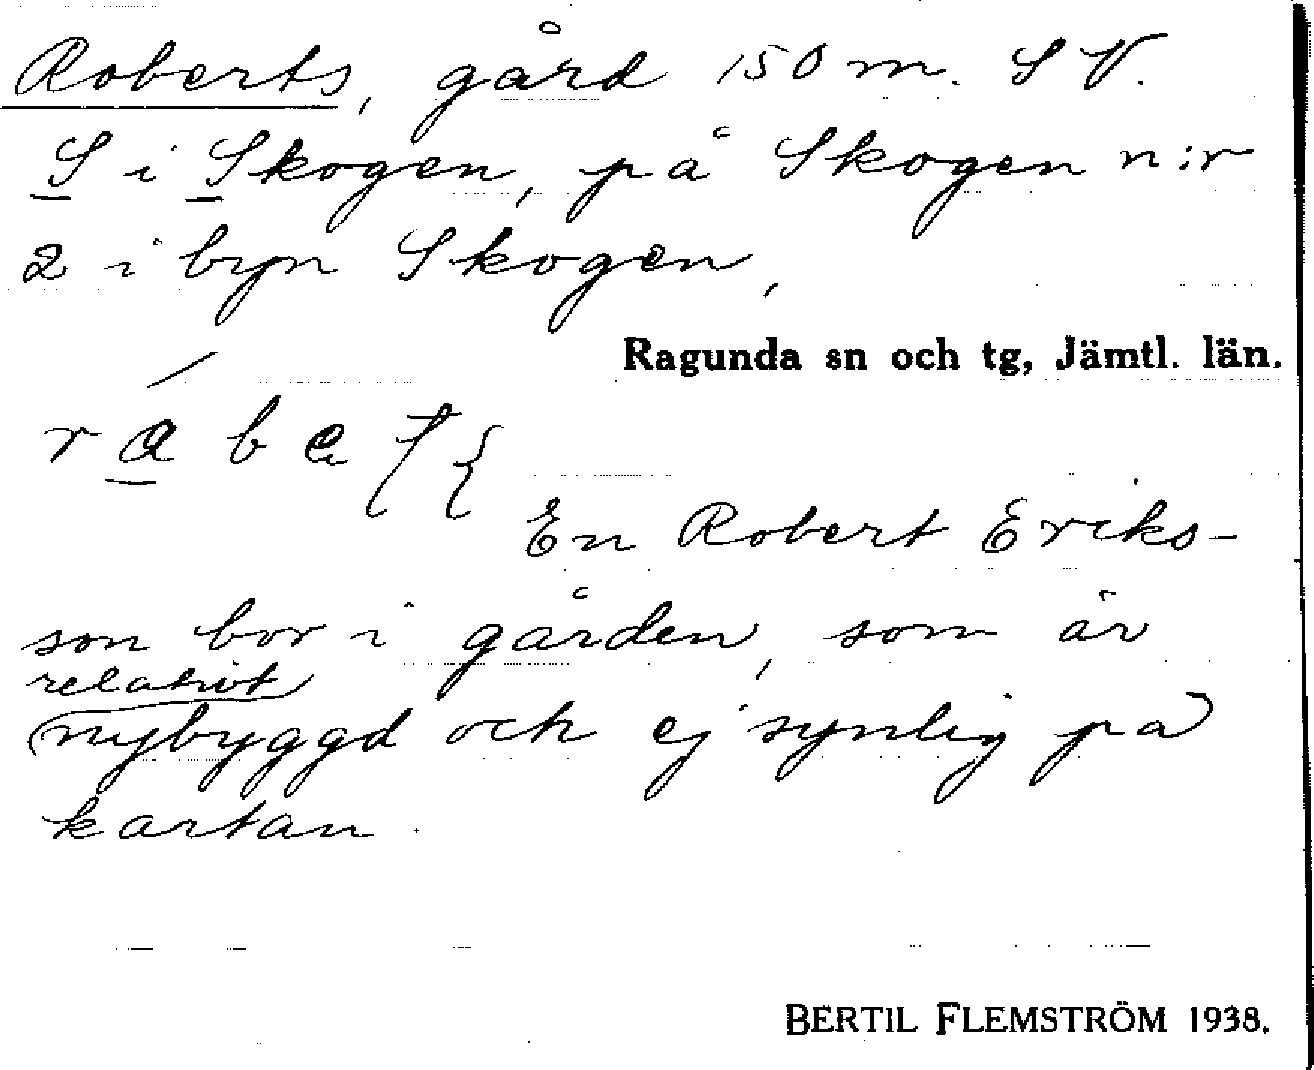 Roberts, gård 150 m. SV.
S i Skogen, på Skogen n:r
2 i byn Skogen,
Ragunda sn och tg, Jämtl. län.
En Robert Eriks-
son bor i gården, som är
relativt
nybyggd och ej synlig på
kartan.
BERTIL FLEMSTRÖM 1938.